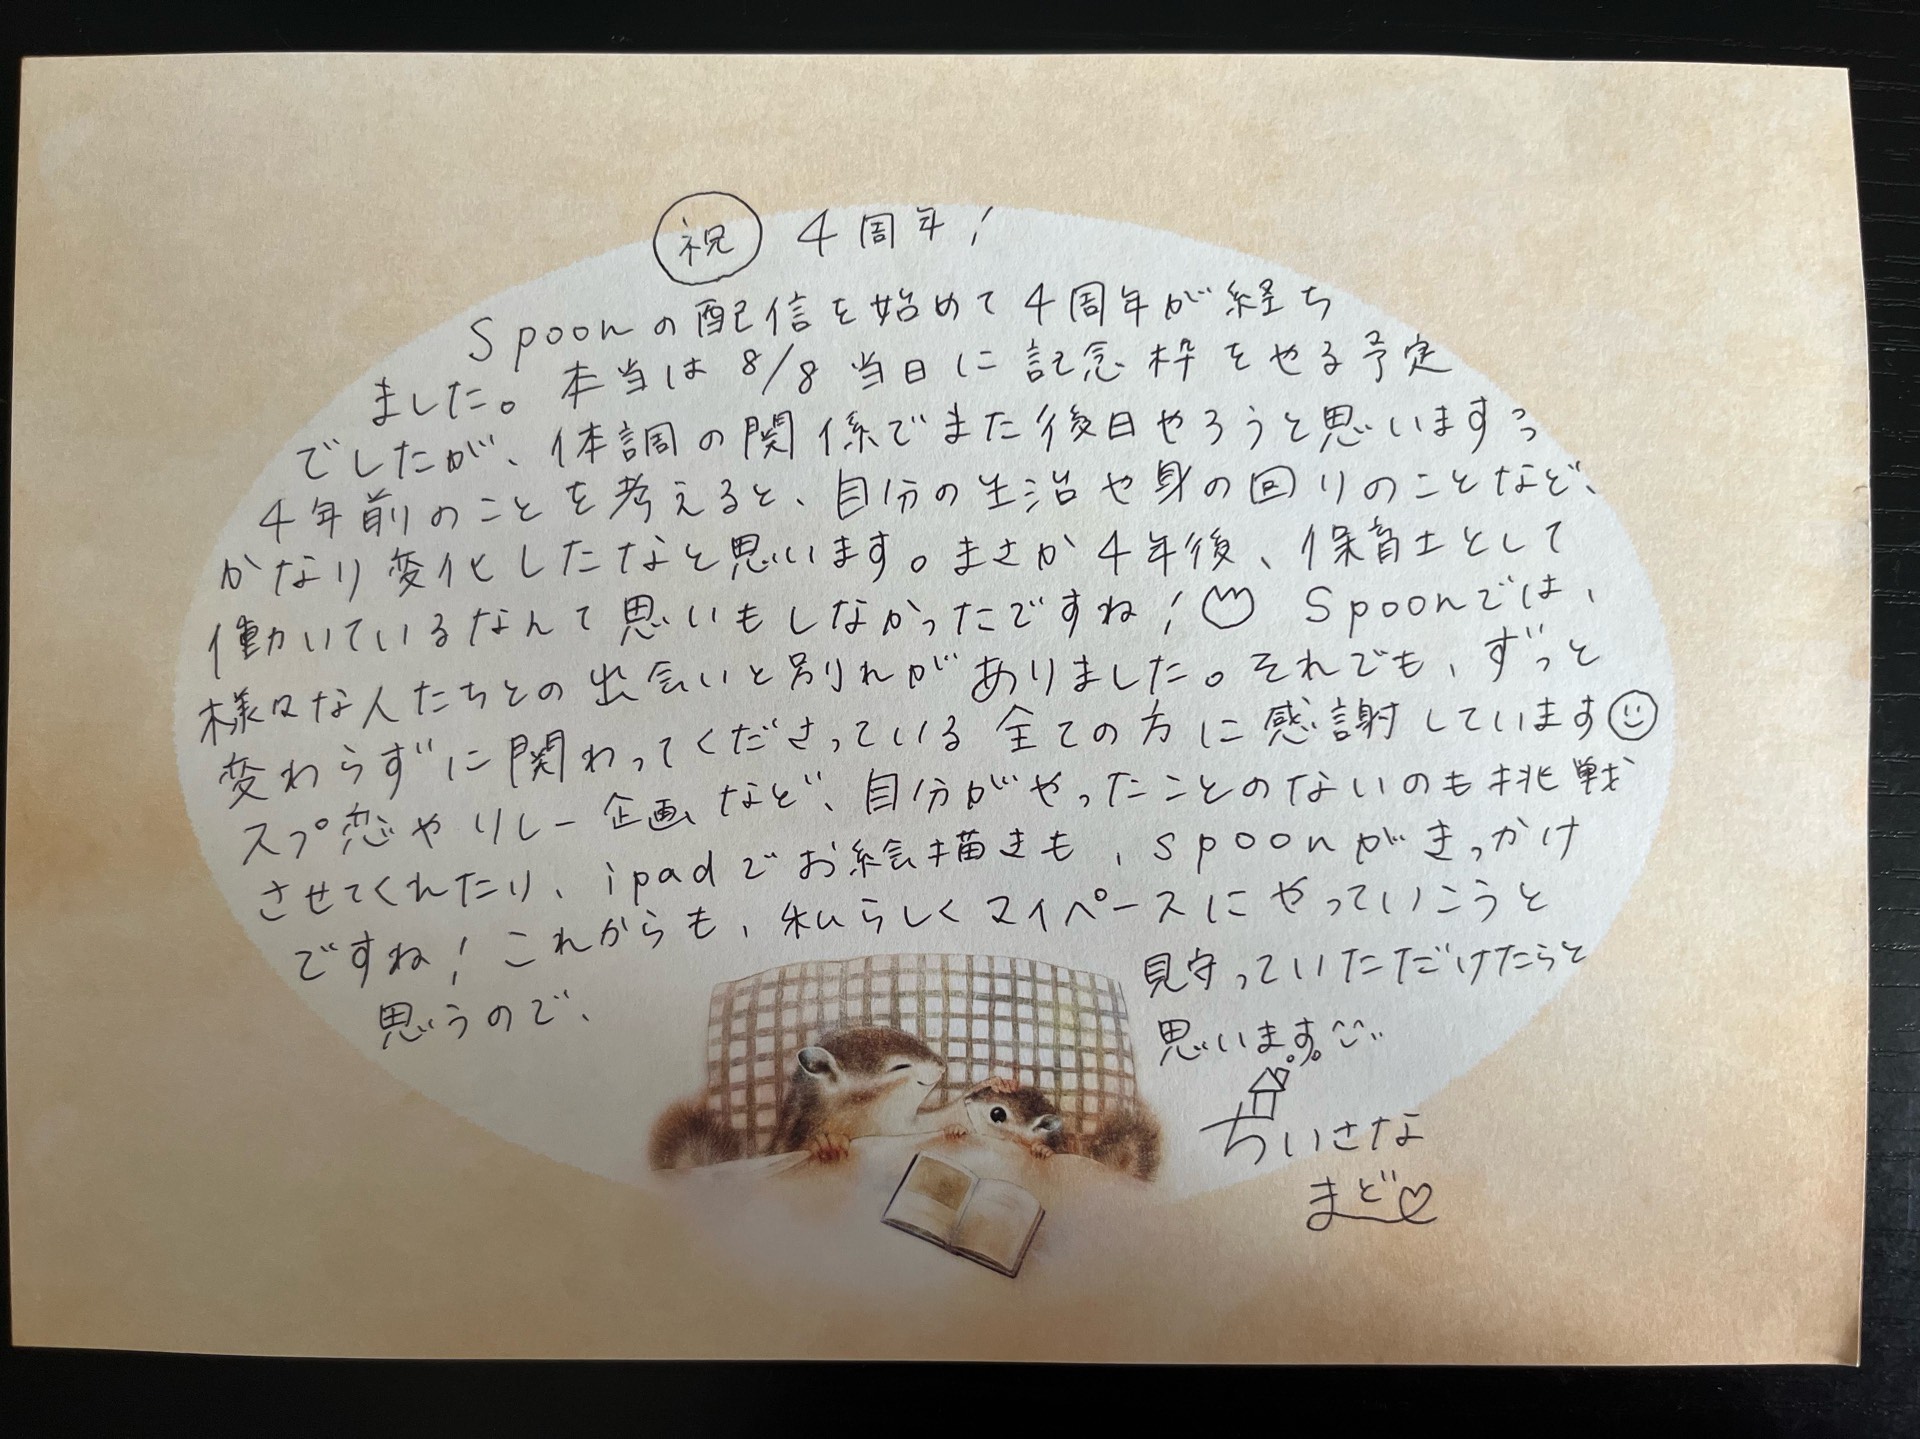 祝 4周年!
Spoonの配信を始めて4周年が経ち
ました。本当は8/8当日に記念枠をやる予定
でしたが、体調の関係でまた後日やろうと思いますっ
4年前のことを考えると、自分の生活や身の回りのことなど、
かなり変化したなと思います。まさか4年後、保育士として
働いているなんて思いもしなかったですね! Spoonでは、
様々な人たちとの出会いと別れがありました。それでも、ずっと
変わらずに関わってくださっている全ての方に感謝しています
スプ恋やリレー企画など、自分がやったことのないのも挑戦
させてくれたり、ipadでお絵描きも、spoonがきっかけ
ですね!これからも、私らしくマイペースにやっていこうと
思うので、見守っていただけたらと
思います。
ちいさな
まど♡